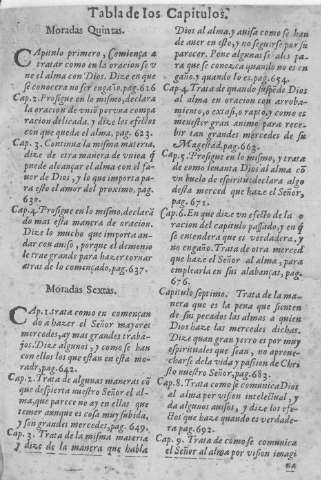 Tabla de los Capitulos.
Moradas Quintas.
CApitulo primero, Comiença a
tratar como en la oracion se v
ne el alma con Dios. Dize en que
se conocera no ser engaño. pag. 616
Cap. 2. Prosigue en lo mismo, declara
la oracion de vniõ por vna compa
racion delicada. y dize los efectos
con que queda el alma. pag. 623.
Cap. 3. Continua la misma materia,
dize de otra manera de vnion q̃
puede alcançar el alma con el fa-
uor de Dios, y lo que importa pa-
ra esto el amor del proximo. pag.
630.
Cap. 4. Prosigue en lo mismo, declarã
do mas esta manera de oracion.
Dize lo mucho que importa an-
dar con auiso, porque el demonio
le trae grande para hazer tornar
atras de lo començado, pag. 637.
Moradas Sextas.
CAp. 1. trata como en començan
do a hazer el Señor mayores
mercedes, ay mas grandes traba-
jos. Dize algunos, y como se han
con ellos los que estan en esta mo-
rada, pag. 642.
Cap. 2. Trata de algunas maneras cõ
que despierta nuestro Señor el al-
ma, que parece no ay en ellas que
temer aunque es cosa muy subida,
y son grandes mercedes, pag. 649.
Cap. 3. Trata de la misma materia
y dize de la manera que habla
Dios al alma, y auisa como se han
de auer en esto, y no seguirse por su
parecer. Pone algunas señales pa-
ra que se conozca quando no es en
gaño. y quando lo es, pag. 654.
Cap. 4. Trata de quando suspẽde Dios
al alma en oracion con arroba-
miento, o extasi, o rapto, y como es
menester gran animo para recc-
bir tan grandes mercedes de su
Magestad. pag. 663.
Cap. 5. Prosigue en lo mismo, y trata
de como leuanta Dios al alma cõ
vn buelo de espiritu declara algo
desta merced que haze el Señor,
pag. 671.
Cap. 6. En que dize vn efecto de la o
racion del capitulo passado, y en q̃
se entendera que es verdadera, y
no engaño. Trata de otra merced
que haze el Señor al alma, para
emplearla en sus alabanças, pag.
676.
Capitulo septimo. Trata de la ma-
nera que es la pena que sienten
de sus pecados las almas a quien
Dios haze las mercedes dichas.
Dize quan gran yerro es por muy
espirituales que sean, no aproue-
charse de la vida y passion de Chri
sto nuestro Señor, pag. 683.
Cap. 8. Trata como se comunica Dios
al alma por vision intelectual, y
da algunos auisos, y dize los efec
tos que haze quando es verdade-
ra, pag. 692.
Cap. 9. Trata de cõmo se comunica
el Señor al alma por vision imagi